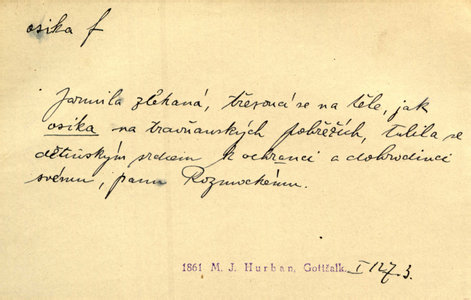 osika f
Jarmila zľekaná, třesoucí se na těle, jak
osika na travňanských pobřežích, tulila se
dětinským srdcem k ochranci a dobrodinci
svému, panu Rozmockému.
1861 M. J. Hurban, Gottšalk. I 127.3.